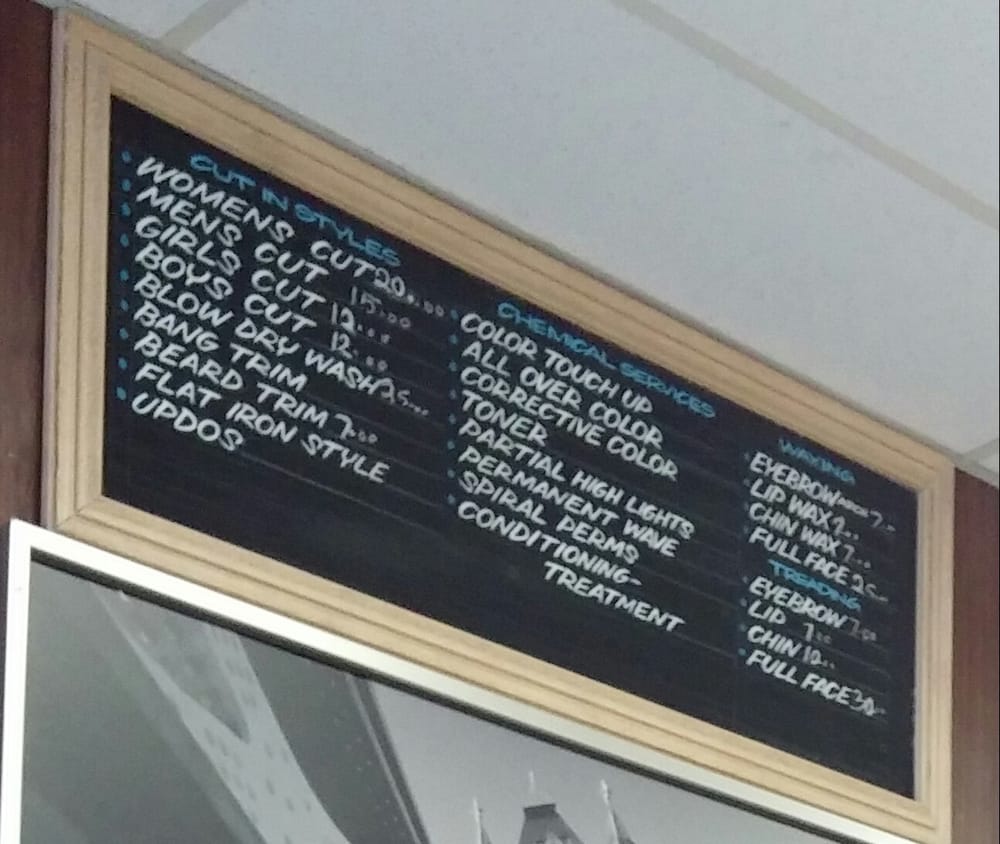 CUT IN STYLES
WOMENS CUT 20.00
MENS CUT 15.00
GIRLS CUT 12.00
BOYS CUT 12.00
BLOW DRY WASH 25
BANG TRIM
BEARD TRIM 7.00
FLAT IRON STYLE
UPDOS
CHEMICAL SERVICES
COLOR TOUCH UP
ALL OVER COLOR
CORRECTIVE COLOR
TONER
PARTIAL HIGH LIGHTS
PERMANENT WAVE
SPIRAL PERMS
CONDITIONING-
TREATMENT
WAXING
EYEBROW 7
LIP WAX
CHIN WAX 7
FULL FACE 25
TREADING
EYEBROW 7.00
LIP 7.00
CHIN 12
FULL FACE 30